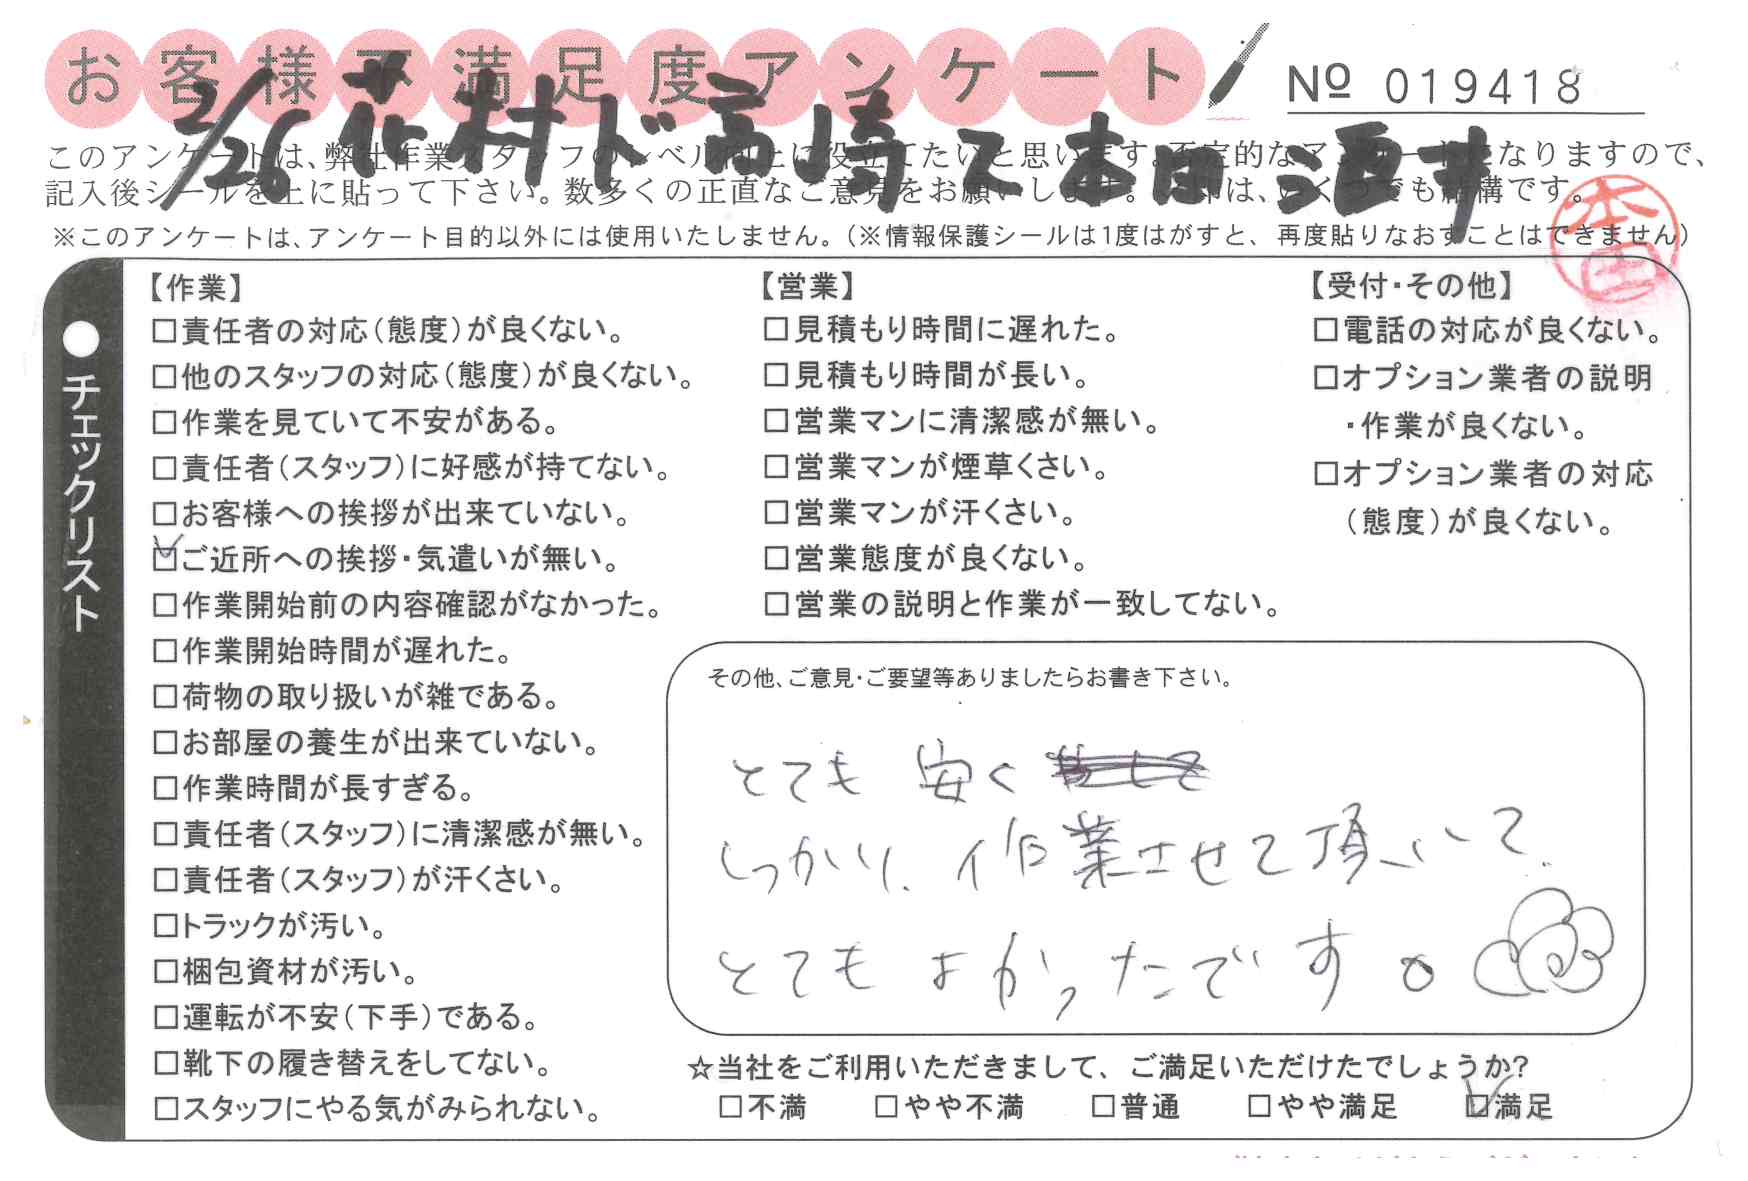 お客様不満足度アンケート
№ 019418
2/26 花村ド 高崎 エ 本田 酒井
このアンケートは、弊社作業スタッフのレベル向上に役立てたいと思います。否定的なアンケートになりますので、
記入後シールを上に貼って下さい。数多くの正直なご意見をお願いします。
※このアンケートは、アンケート目的以外には使用いたしません。(※情報保護シールは1度はがすと、再度貼りなおすことはできません)
本田
チェックリスト
【作業】
□責任者の対応(態度)が良くない。
□他のスタッフの対応(態度)が良くない。
□作業を見ていて不安がある。
□責任者(スタッフ)に好感が持てない。
□お客様への挨拶が出来ていない。
☑ご近所への挨拶・気遣いが無い。
□作業開始前の内容確認がなかった。
□作業開始時間が遅れた。
□荷物の取り扱いが雑である。
□お部屋の養生が出来ていない。
□作業時間が長すぎる。
□責任者(スタッフ)に清潔感が無い。
□責任者(スタッフ)が汗くさい。
□トラックが汚い。
□梱包資材が汚い。
□運転が不安(下手)である。
□靴下の履き替えをしてない。
□スタッフにやる気がみられない。
【営業】
□見積もり時間に遅れた。
□見積もり時間が長い。
□営業マンに清潔感が無い。
□営業マンが煙草くさい。
□営業マンが汗くさい。
□営業態度が良くない。
□営業の説明と作業が一致してない。
【受付・その他】
□電話の対応が良くない。
□オプション業者の説明
・作業が良くない。
□オプション業者の対応
(態度)が良くない。
その他、ご意見・ご要望等ありましたらお書き下さい。
とても 安く
しっかり、作業させて頂いて
とてもよかったです。
☆当社をご利用いただきまして、ご満足いただけたでしょうか?
□不満 □やや不満 □普通 □やや満足 ☑満足